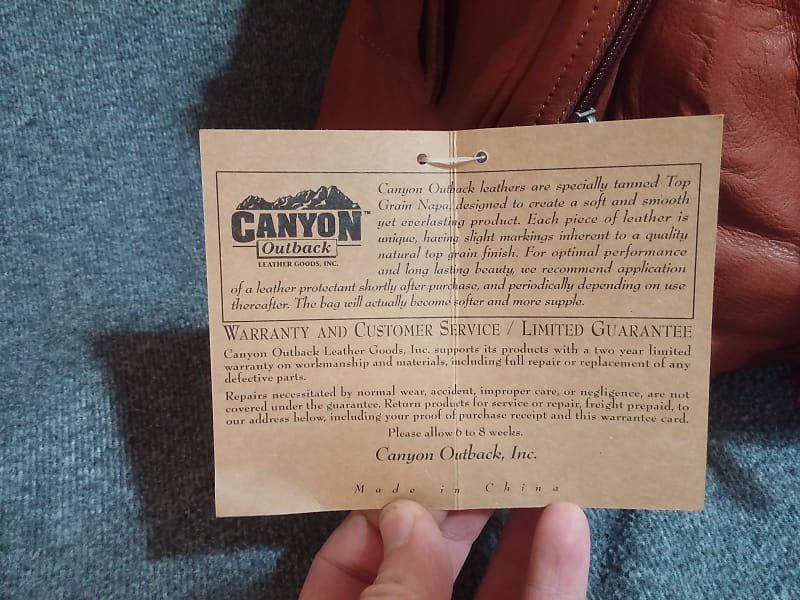 CANYON™
Outback
LEATHER GOODS, INC.
Canyon Outback leathers are specially tanned Top
Grain Napa, designed to create a soft and smooth
yet everlasting product. Each piece of leather is
unique, having slight markings inherent to a quality
natural top grain finish. For optimal performance
and long lasting beauty, we recommend application
of a leather protectant shortly after purchase, and periodically depending on use
thereafter. The bag will actually become softer and more supple.
WARRANTY AND CUSTOMER SERVICE / LIMITED GUARANTEE
Canyon Outback Leather Goods, Inc. supports its products with a two year limited
warranty on workmanship and materials, including full repair or replacement of any
defective parts.
Repairs necessitated by normal wear, accident, improper care, or negligence, are not
covered under the guarantee. Return products for service or repair, freight prepaid, to
our address below, including your proof of purchase receipt and this warrantee card.
Please allow 6 to 8 weeks.
Canyon Outback, Inc.
Made in China